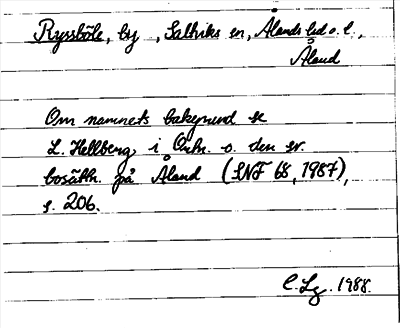 Ryssböle, by, Saltviks sn, Ålands lsd o. l.,
Åland
Om namnets bakgrund se
L. Hellberg, i Ortn. o. den sv.
bosättn. på Åland (SNF 68, 1987),
s. 206.
C. Lg. 1988.